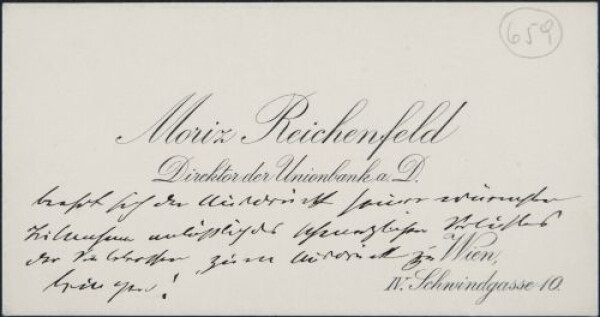 659
Moriz Reichenfeld
Direktor der Unionbank a. D.
sich den Ausdruck seiner wärmsten
Teilnahme anläßlich des schmerzlichen Verlustes
der zum Ausdruck zu
Wien,
bringen!
IV. Schwindgasse 10.